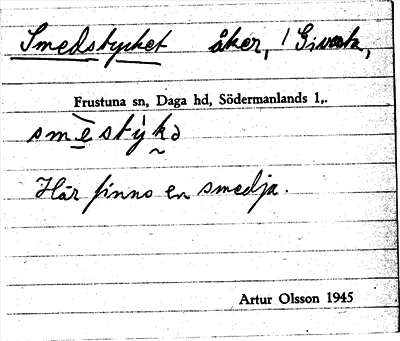 Smedstycket åker,
Frustuna sn, Daga hd, Södermanlands l,.
smestykə
Här finns en smedja.
Artur Olsson 1945